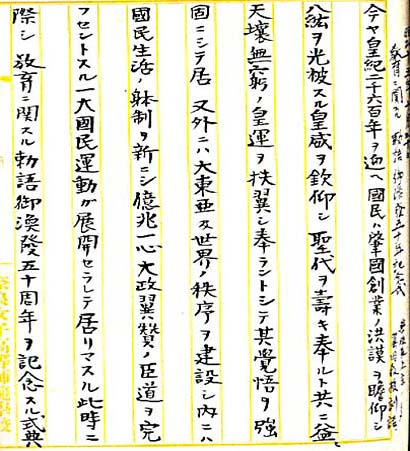 教育ニ関スル 勅語 御渙發五十年記念式
今ヤ皇紀二千六百年ヲ迎ヘ國民ハ肇國創業ノ洪謨ヲ瞻仰シ
八紘ヲ光被スル皇威ヲ欽仰シ聖代ヲ壽キ奉ルト共ニ益〻
天壤無窮ノ皇運ヲ扶翼シ奉ラントシテ其覺悟ヲ強
固ニシテ居 又外ニハ大東亜及世界ノ秩序ヲ建設シ内ニハ
國民生活ノ躰制ヲ新ニシ億兆一心大政翼賛ノ臣道ヲ完
フセントスル一大國民運動ガ展開セラレテ居リマスル此時ニ
際シ 教育ニ関スル勅語御渙發五十周年ヲ記念スル式典
奈良女子高等師範學校